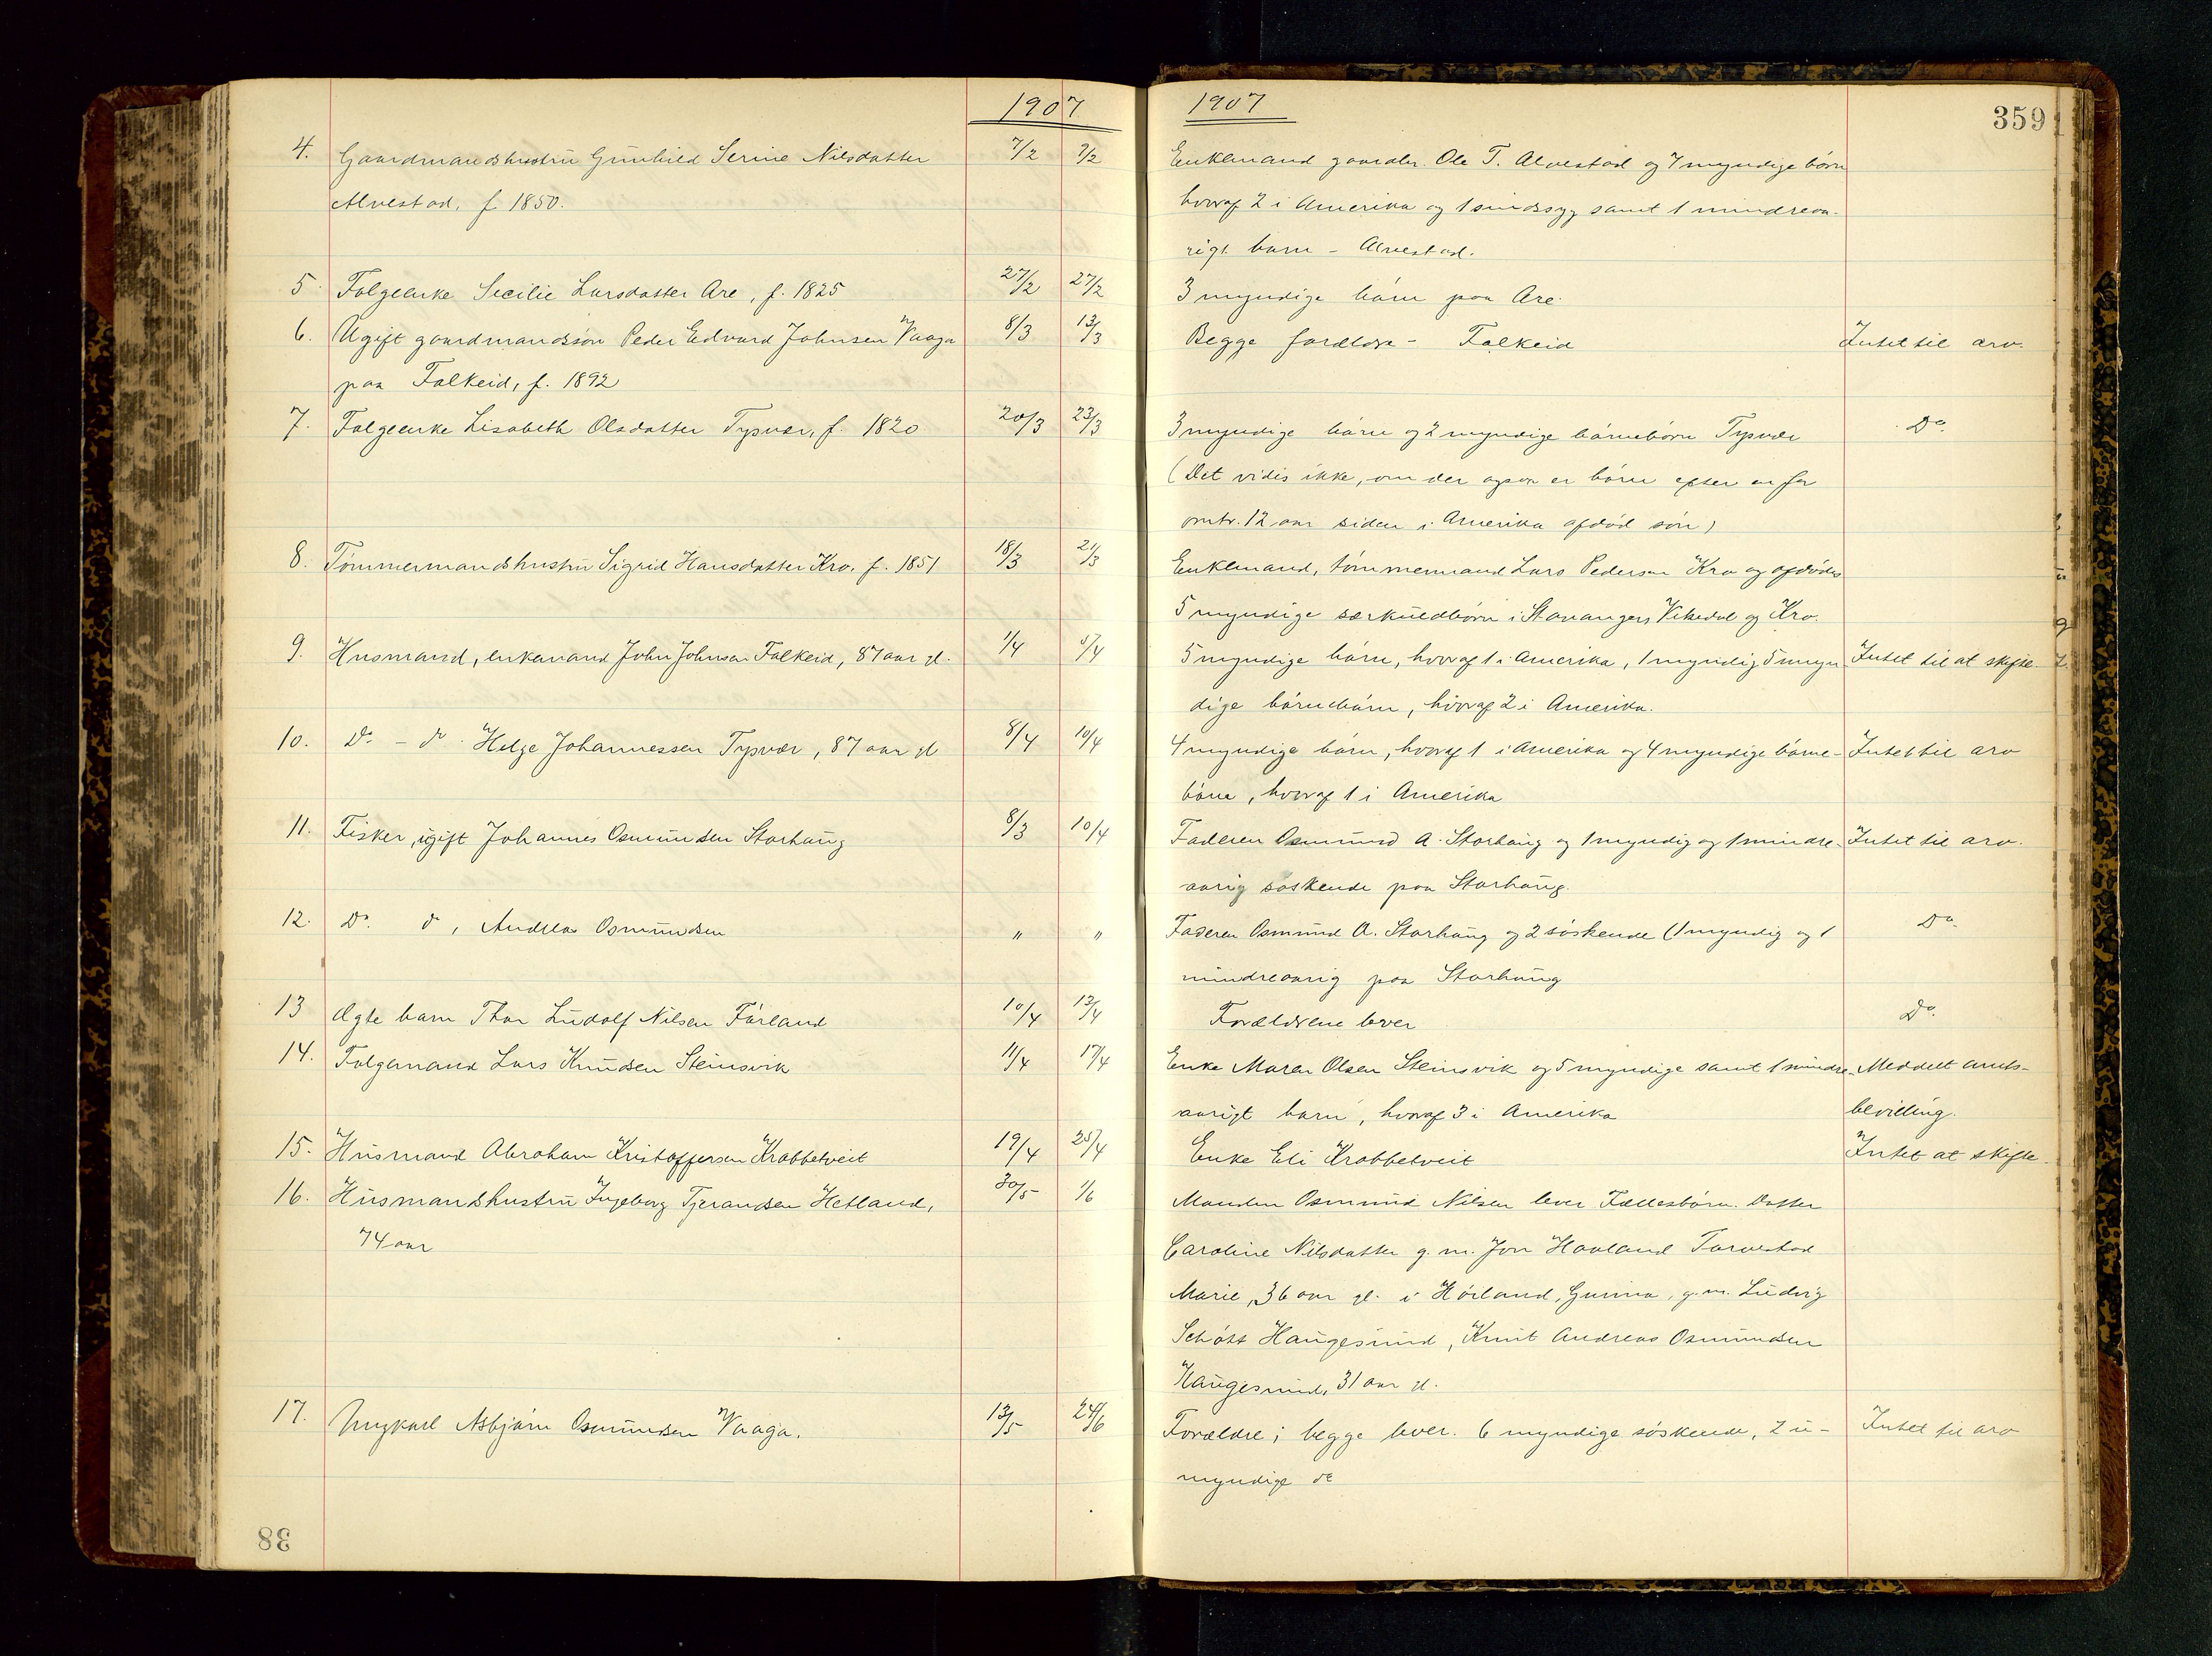 1907
1907
359
4. Gaardmandshustru Gunhild Serine Nilsdatter 7/2 7/2 Enkemand gaardbr. Ole T. Alvestad og 7 myndige børn
Alvestad, f. 1850. hvoraf 2 i Amerika og 1 sindssyg samt 1 mindreaa-
rigt barn - Alvestad.
5. Folgeenke Secilie Larsdatter Are, f. 1825 27/2 27/2 3 myndige børn paa Are.
6. Ugift gaardmandssøn Peder Edvard Johnsen Vaaga 8/3 13/3 Begge forældre - Falkeid Intet til arv.
paa Falkeid, f. 1892
7. Folgeenke Lisabeth Olsdatter Tysvær, f. 1820 20/3 23/3 3 myndige børn og 2 myndige børnebørn Tysvær Do.
(Det vides ikke, om der ogsaa er børn efter en for
omtr. 12 aar siden i Amerika afdød søn)
8. Tømmermandshustru Sigrid Hansdatter Kro. f. 1851 18/3 21/3 Enkemand, tømmermand Lars Pedersen Kro og afdødes
5 myndige særkuldbørn i Stavanger, Vikedal og Kro.
9. Husmand, enkemand John Johnsen Falkeid, 87 aar gl. 1/4 5/4 5 myndige børn, hvoraf 1 i Amerika, 1 myndig 5 myn Intet til at skifte
dige børnebørn, hvoraf 2 i Amerika.
10. Do. - do. Helge Johannessen Tysvær, 87 aar gl 8/4 10/4 4 myndige børn, hvoraf 1 i Amerika og 4 myndige børne- Intet til arv
børn, hvoraf 1 i Amerika
11. Fisker, ugift Johannes Osmundsen Storhaug 8/3 10/4 Faderen Osmund A. Storhaug og 1 myndig og 1 mindre- Intet til arv.
aarig søskende paa Storhaug.
12. Do. do, Andreas Osmundsen " " Faderen Osmund A. Storhaug og 2 søskende (1 myndig og 1 Do.
mindreaarig paa Storhaug
13 Ægte barn Thor Ludolf Nilsen Førland 10/4 13/4 Forældrene lever Do.
14. Folgemand Lars Knudsen Steinsvik 11/4 17/4 Enke Maren Olsen Steinsvik og 5 myndige samt 1 mindre- Meddelt amts-
aarigt barn, hvoraf 3 i Amerika bevilling.
15. Husmand Abraham Kristoffersen Krabbetveit 19/4 25/4 Enke Eli Krabbetveit Intet at skifte.
16. Husmandshustru Ingeborg Tjerandsen Hetland, 30/5 1/6 Manden Osmund Nilsen lever Fællesbørn. Datter
74 aar Caroline Nilsdatter g. m. Jon Haaland Torvestad
Marie, 36 aar gl. i Høiland, Gurina, g. m. Ludvig
Schøtt Haugesund, Knut Andreas Osmundsen
Haugesund, 31 aar gl.
17. Ungkarl Asbjørn Osmundsen Vaaga. 13/5 24/6 Forældre; begge lever. 6 myndige søskende, 2 u- Intet til arv
myndige do
38